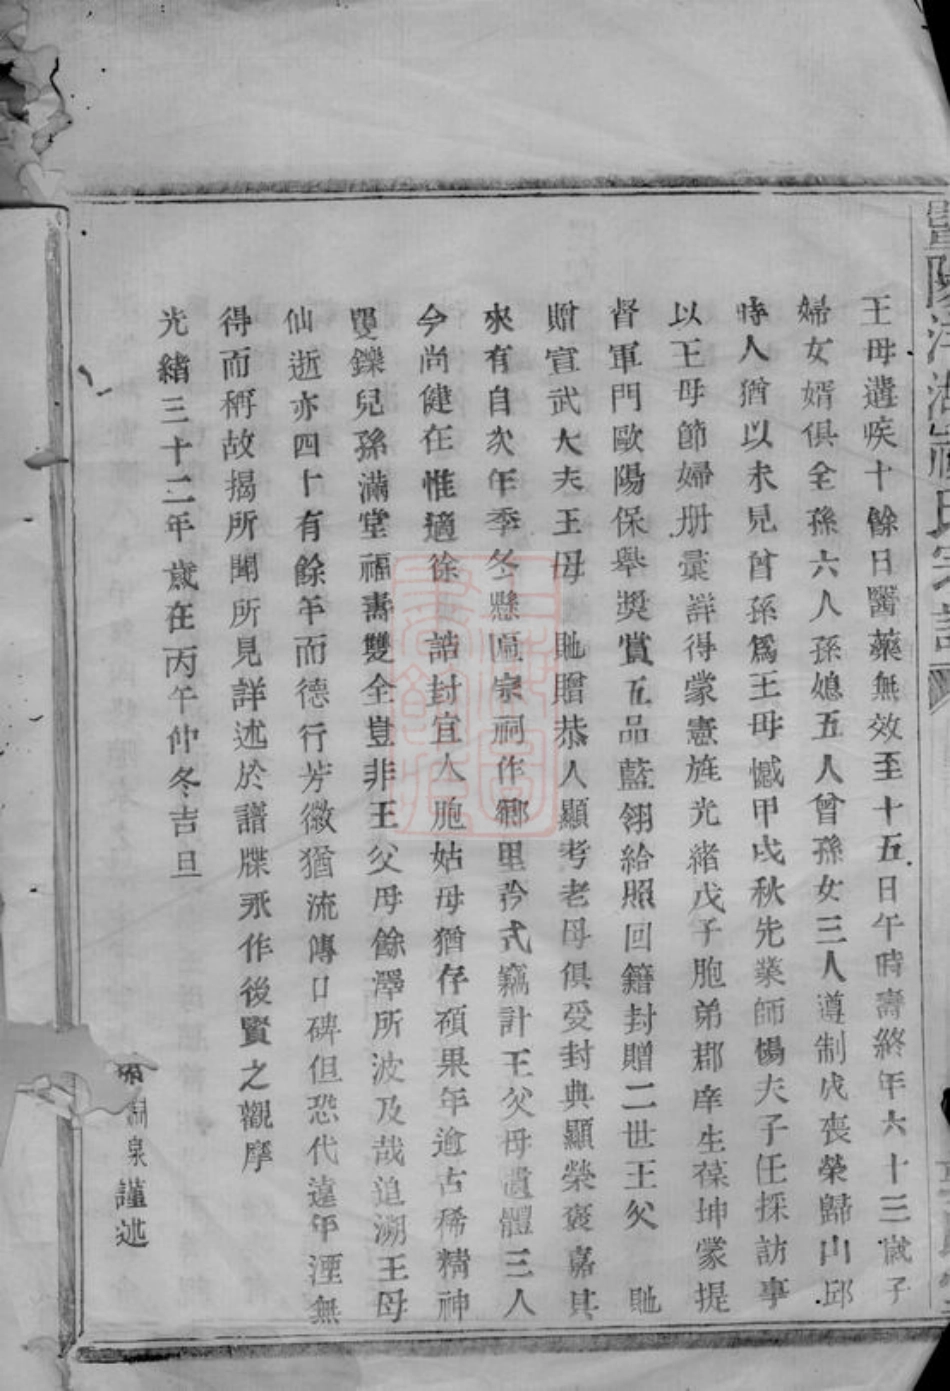 王母遘疾十餘日醫藥無效至十五日午時壽終年六十三歲子
婦女婿俱全孫六人孫媳五人曾孫女三人遵制成喪榮歸山邱
時人猶以未見曾孫爲王母憾甲戌秋先業師楊夫子任採訪事
以王母節婦册彙詳得蒙憲旌光緒戊子胞弟郡庠生葆坤蒙提
督軍門歐陽保舉奬賞五品藍翎給照回籍封贈二世王父 貤
贈宣武大夫王母 貤贈恭人顯考老母俱受封典顯榮褒嘉其
來有自次年季冬懸匾宗祠作鄉里矜式竊計王父母遺體三人
今尚健在惟適徐 誥封宜人胞姑母猶存碩果年逾古稀精神
矍鑠兒孫滿堂福壽雙全豈非王父母餘澤所波及哉追溯王母
仙逝亦四十有餘年而德行芳徽猶流傳口碑但恐代遠年湮無
得而稱故揭所聞所見詳述於譜牒永作後賢之觀摩
光緒三十二年歲在丙午仲冬吉旦
泉謹述